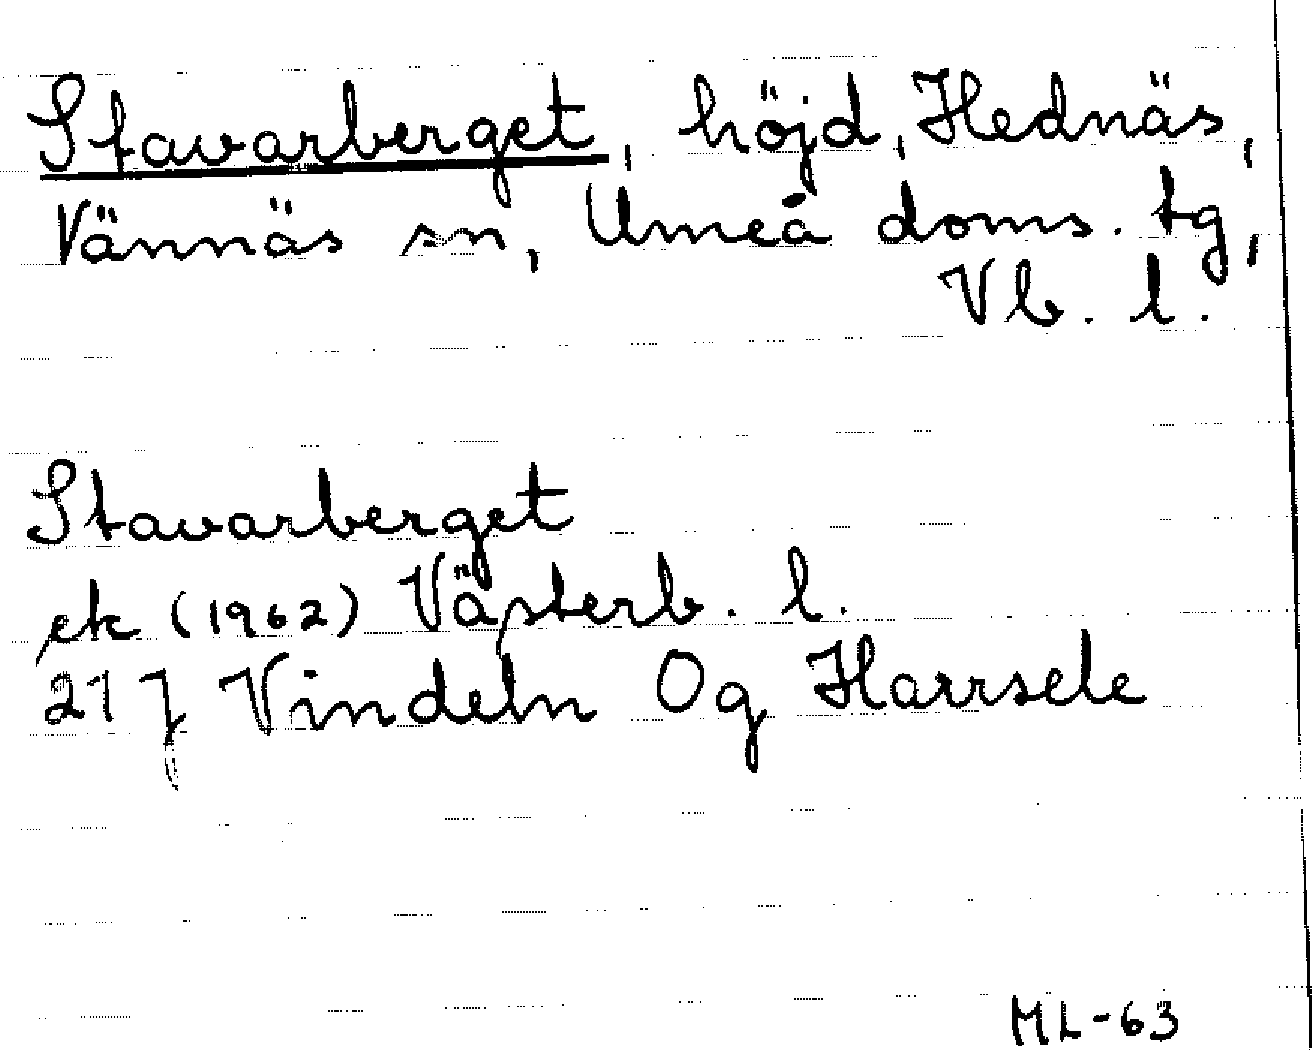 Stavarberget, höjd, Hednäs,
Vännäs sn, Umeå doms. tg,
Vb. l.
Stavarberget
ek (1962) Västerb. l.
21 J Vindeln Og Harrsele
ML-63